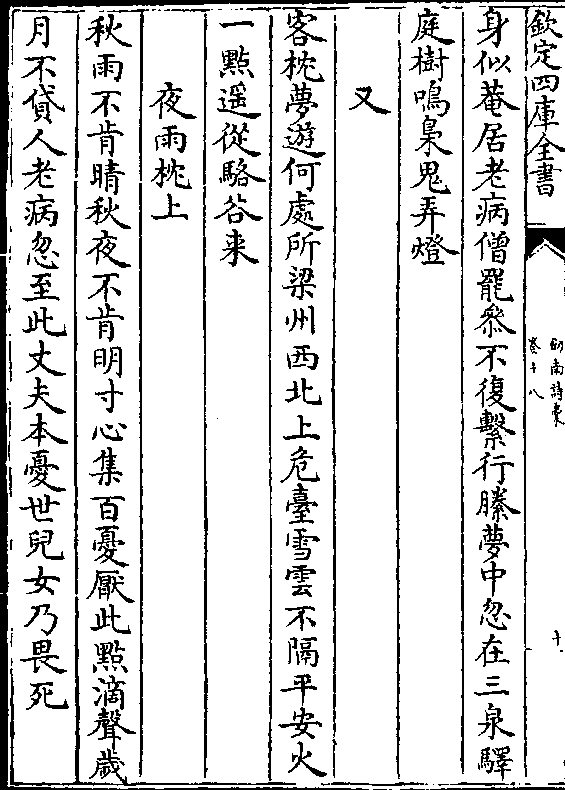 欽定四庫全書
劍南詩稾
卷十八
十
身似菴居老病僧罷叅不復繫行縢夢中忽在三泉驛
庭樹鳴梟鬼弄燈
又
客枕夢遊何處所梁州西北上危臺雪雲不隔平安火
一點遥從駱谷来
夜雨枕上
秋雨不肯晴秋夜不肯明寸心集百憂厭此點滴聲歲
月不貸人老病忽至此丈夫本憂世兒女乃畏死